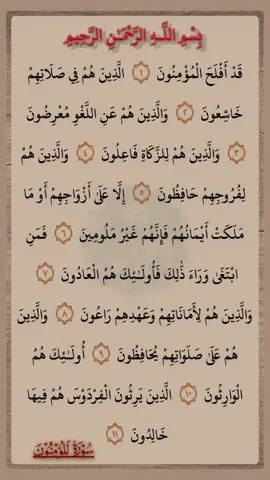 بِسْمِ اللَّهِ الرَّحْمَٰنِ الرَّحِيمِ
قَدْ أَفْلَحَ الْمُؤْمِنُونَ ١ الَّذِينَ هُمْ فِي صَلَاتِهِمْ
خَاشِعُونَ ٢ وَالَّذِينَ هُمْ عَنِ اللَّغْوِ مُعْرِضُونَ
٣ وَالَّذِينَ هُمْ لِلزَّكَاةِ فَاعِلُونَ ٤ وَالَّذِينَ هُمْ
لِفُرُوجِهِمْ حَافِظُونَ ٥ إِلَّا عَلَىٰ أَزْوَاجِهِمْ أَوْ مَا
مَلَكَتْ أَيْمَانُهُمْ فَإِنَّهُمْ غَيْرُ مَلُومِينَ ٦ فَمَنِ
ابْتَغَىٰ وَرَاءَ ذَٰلِكَ فَأُولَٰئِكَ هُمُ الْعَادُونَ ٧
وَالَّذِينَ هُمْ لِأَمَانَاتِهِمْ وَعَهْدِهِمْ رَاعُونَ ٨ وَالَّذِينَ
هُمْ عَلَىٰ صَلَوَاتِهِمْ يُحَافِظُونَ ٩ أُولَٰئِكَ هُمُ
الْوَارِثُونَ ١٠ الَّذِينَ يَرِثُونَ الْفِرْدَوْسَ هُمْ فِيهَا
خَالِدُونَ ١١
سُورَةُ الْمُؤْمِنُونَ